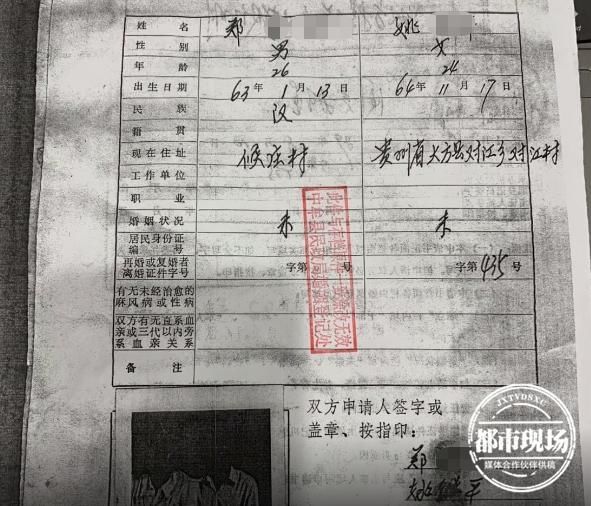 姓名 郑 姚
性别 男 女
年龄 26 24
出生日期 63年1月13日 64年11月17日
民族 汉
籍贯
现在住址 侯庄村 贵州省大方县对江乡对江村
工作单位
职业
婚姻状况 未 未
居民身份证
编号
再婚或复婚者
离婚证件字号 字第 号 字第435号
有无未经治愈的
麻风病或性病
双方有无直系血
亲或三代以内旁
系血亲关系
备注
双方申请人签字或
盖章、按指印:
郑
姚 平
JXTVDSXC
都市现场
媒体合作伙伴供稿